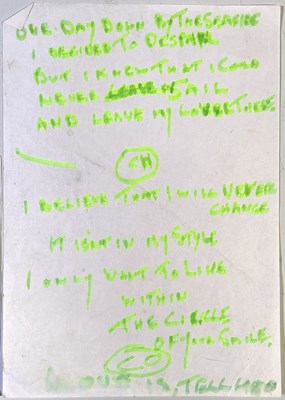 ONE DAY DOWN BY THE SEASIDE
I DECIDED TO DESPAIR
BUT I KNEW THAT I COULD
NEVER LEAVE SAIL
AND LEAVE MY LOVER THERE.
CH
I BELIEVE THAT I WILL NEVER
CHANGE
IT ISN'T IN MY STYLE
I ONLY WANT TO LIVE
WITHIN
THE CIRCLE
OF YOUR SMILE.
IS, TELL